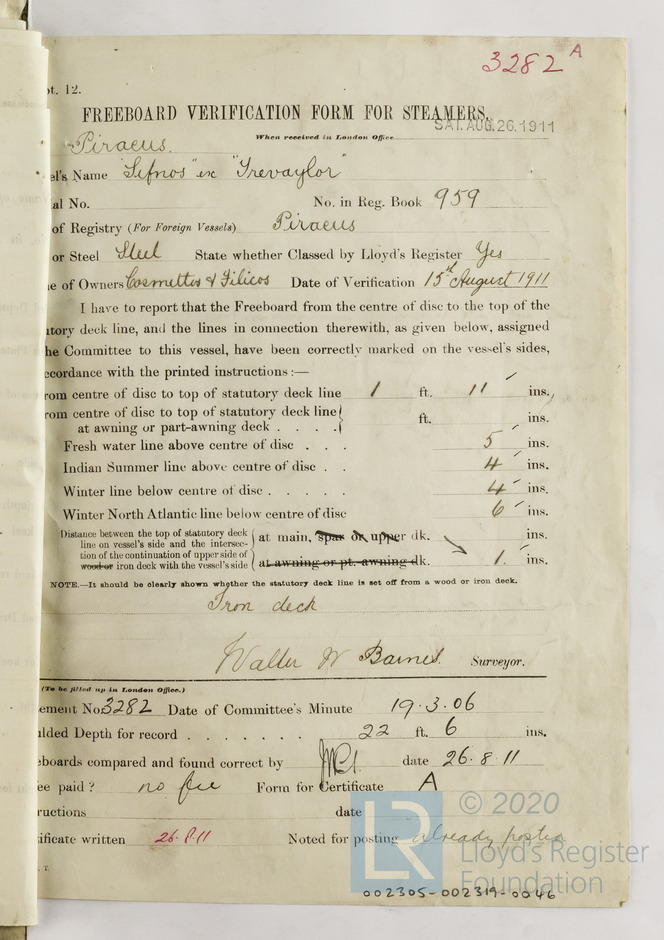 3282 A
pt. 12.
FREEBOARD VERIFICATION FORM FOR STEAMERS.
SAT. AUG. 26. 1911
When received in London Office
Piraeus.
el's Name "Sifnos" ex "Trevaylor"
al No. No. in Reg. Book 959
of Registry (For Foreign Vessels) Piraeus
or Steel Steel State whether Classed by Lloyd's Register Yes
e of Owners Cosmettos & Filicos Date of Verification 15th August 1911
I have to report that the Freeboard from the centre of disc to the top of the
utory deck line, and the lines in connection therewith, as given below, assigned
he Committee to this vessel, have been correctly marked on the vessel's sides,
ccordance with the printed instructions :—
rom centre of disc to top of statutory deck line 1 ft. 11 ins.,
rom centre of disc to top of statutory deck line
at awning or part-awning deck . . . . ft. ins.
Fresh water line above centre of disc . . . 5 ins.
Indian Summer line above centre of disc . . 4 ins.
Winter line below centre of disc . . . . . 4 ins.
Winter North Atlantic line below centre of disc 6 ins.
Distance between the top of statutory deck
line on vessel's side and the intersec-
tion of the continuation of upper side of
wood or iron deck with the vessel's side
at main, spar or upper dk. ins.
at awning or pt. awning dk. 1. ins.
NOTE.—It should be clearly shown whether the statutory deck line is set off from a wood or iron deck.
Iron deck
Walter W Barnes. Surveyor.
(To be filled up in London Office.)
ement No. 3282 Date of Committee's Minute 19.3.06
ulded Depth for record . . . . . . . 22 ft. 6 ins.
eboards compared and found correct by date 26.8.11
ee paid ? no fee Form for Certificate A
ructions date
tificate written 26.8.11 Noted for posting already posted
. T.
LR
© 2020
Lloyd's Register
Foundation
002305-002319-0046